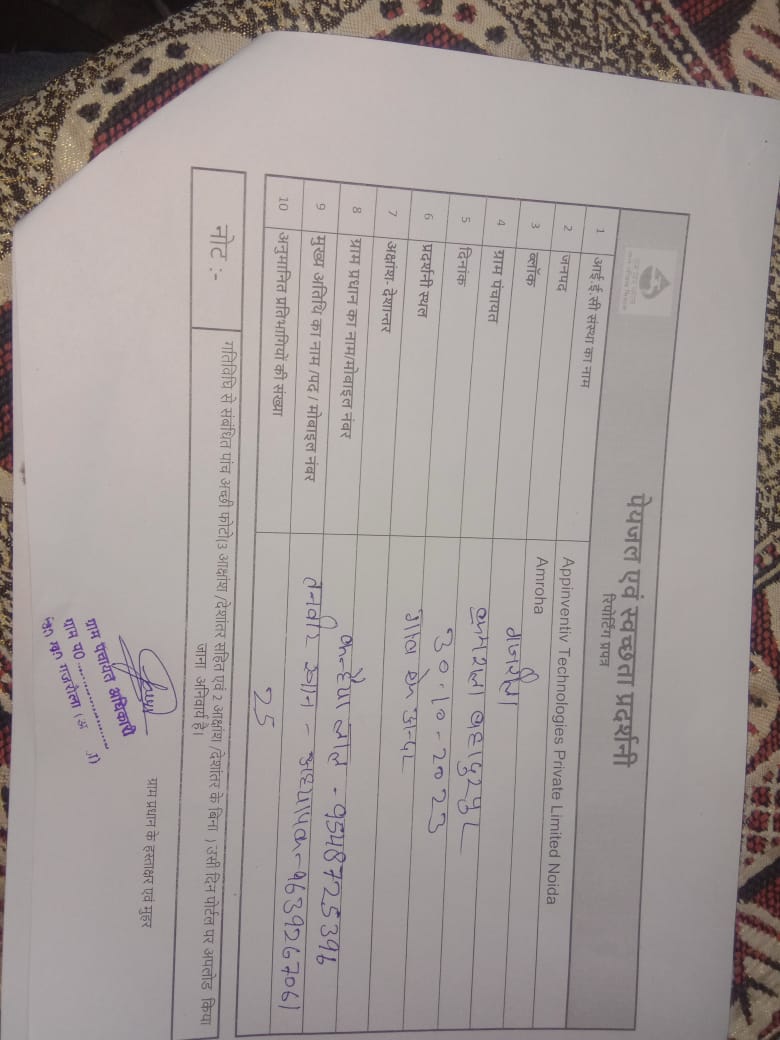 पेयजल एवं स्वच्छता प्रदर्शनी
रिपोर्टिंग प्रपत्र
1 आई.ई.सी संस्था का नाम Appinventiv Technologies Private Limited Noida
2 जनपद Amroha
3 ब्लॉक गजरौला
4 ग्राम पंचायत
5 दिनांक 30-10-2023
6 प्रदर्शनी स्थल गांव के अन्दर
7 अक्षांश-देशान्तर
8 ग्राम प्रधान का नाम/मोबाइल नंबर कन्हैया लाल - 9548725396
9 मुख्य अतिथि का नाम /पद / मोबाइल नंबर तनवीर - अध्यापक - 9639267061
10 अनुमानित प्रतिभागियों की संख्या 25
नोट :- गतिविधि से संबंधित पांच अच्छी फोटो(3 आक्षांश /देशांतर सहित एवं 2 आक्षांश /देशांतर के बिना ) उसी दिन पोर्टल पर अपलोड किया
जाना अनिवार्य है।
ग्राम पंचायत अधिकारी
ग्राम पं0 ....................
गजरौला
ग्राम प्रधान के हस्ताक्षर एवं मुहर